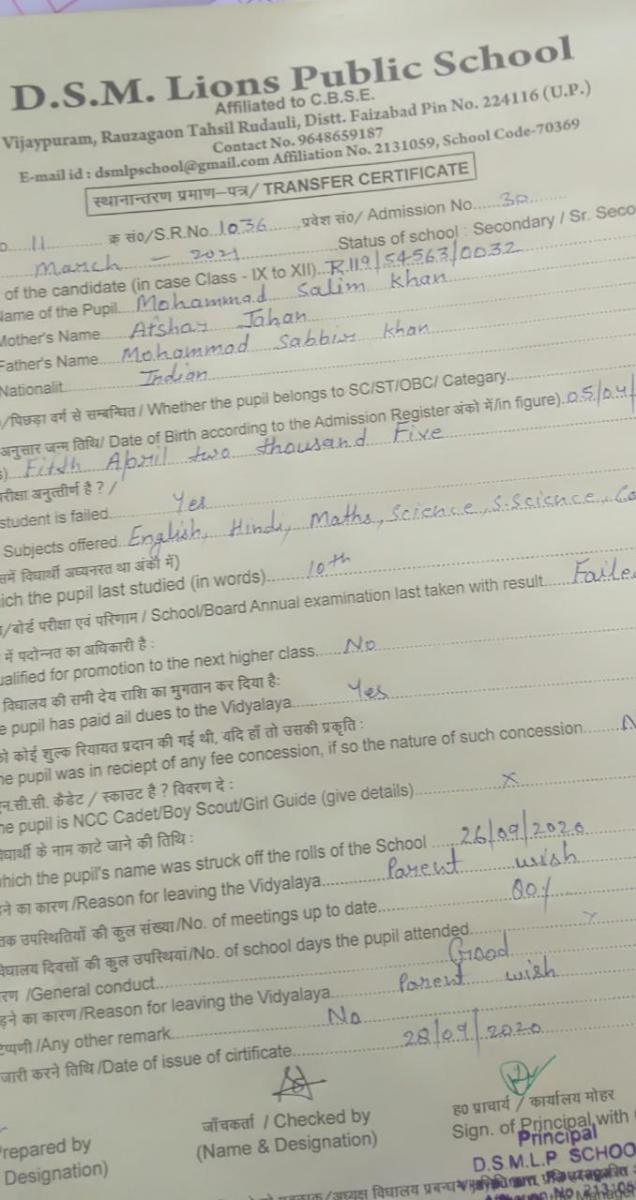 D.S.M. Lions Public School
Affiliated to C.B.S.E.
Vijaypuram, Rauzagaon Tahsil Rudauli, Distt. Faizabad Pin No. 224116 (U.P.)
Contact No. 9648659187
E-mail id : dsmlpschool@gmail.com Affiliation No. 2131059, School Code-70369
स्थानान्तरण प्रमाण-पत्र/ TRANSFER CERTIFICATE
11 क्र सं०/S.R.No. 1036 प्रवेश सं०/ Admission No. 30
March - 2021 Status of school : Secondary / Sr. Seco
of the candidate (in case Class - IX to XII). R119/54563/0032
Name of the Pupil. Mohammad Salim Khan
Mother's Name Afshar Jahan
Father's Name Mohammad Sabbir Khan
Nationalit Indian
/पिछड़ा वर्ग से सम्बन्धित / Whether the pupil belongs to SC/ST/OBC/ Categary
अनुसार जन्म तिथि/ Date of Birth according to the Admission Register अंको में/in figure). 05/04/
Fifth April two thousand Five
परीक्षा अनुत्तीर्ण है ? /
student is failed. Yes
Subjects offered. English, Hindi, Maths, Science, S.Science, Co
समें विद्यार्थी अध्यनरत था अंकों में)
ich the pupil last studied (in words) 10th
/बोर्ड परीक्षा एवं परिणाम / School/Board Annual examination last taken with result Failed
में पदोन्नत का अधिकारी है :
ualified for promotion to the next higher class. No
विद्यालय की सभी देय राशि का भुगतान कर दिया है:
e pupil has paid ail dues to the Vidyalaya Yes
को कोई शुल्क रियायत प्रदान की गई थी, यदि हाँ तो उसकी प्रकृति :
he pupil was in reciept of any fee concession, if so the nature of such concession
एन.सी.सी. कैडेट / स्काउट है ? विवरण दे :
he pupil is NCC Cadet/Boy Scout/Girl Guide (give details) ×
द्यार्थी के नाम काटे जाने की तिथि :
hich the pupil's name was struck off the rolls of the School 26/09/2020
ने का कारण /Reason for leaving the Vidyalaya Parent wish
तक उपस्थितियों की कुल संख्या/No. of meetings up to date
विद्यालय दिवसों की कुल उपस्थियां/No. of school days the pupil attended ×
रण /General conduct Good
ड़ने का कारण/Reason for leaving the Vidyalaya Parent wish
टिप्पणी /Any other remark No
जारी करने तिथि /Date of issue of cirtificate 28/09/2020
Prepared by
Designation)
जाँचकर्ता / Checked by
(Name & Designation)
ह0 प्राचार्य / कार्यालय मोहर
Sign. of Principal with
Principal
D.S.M.L.P. SCHOO